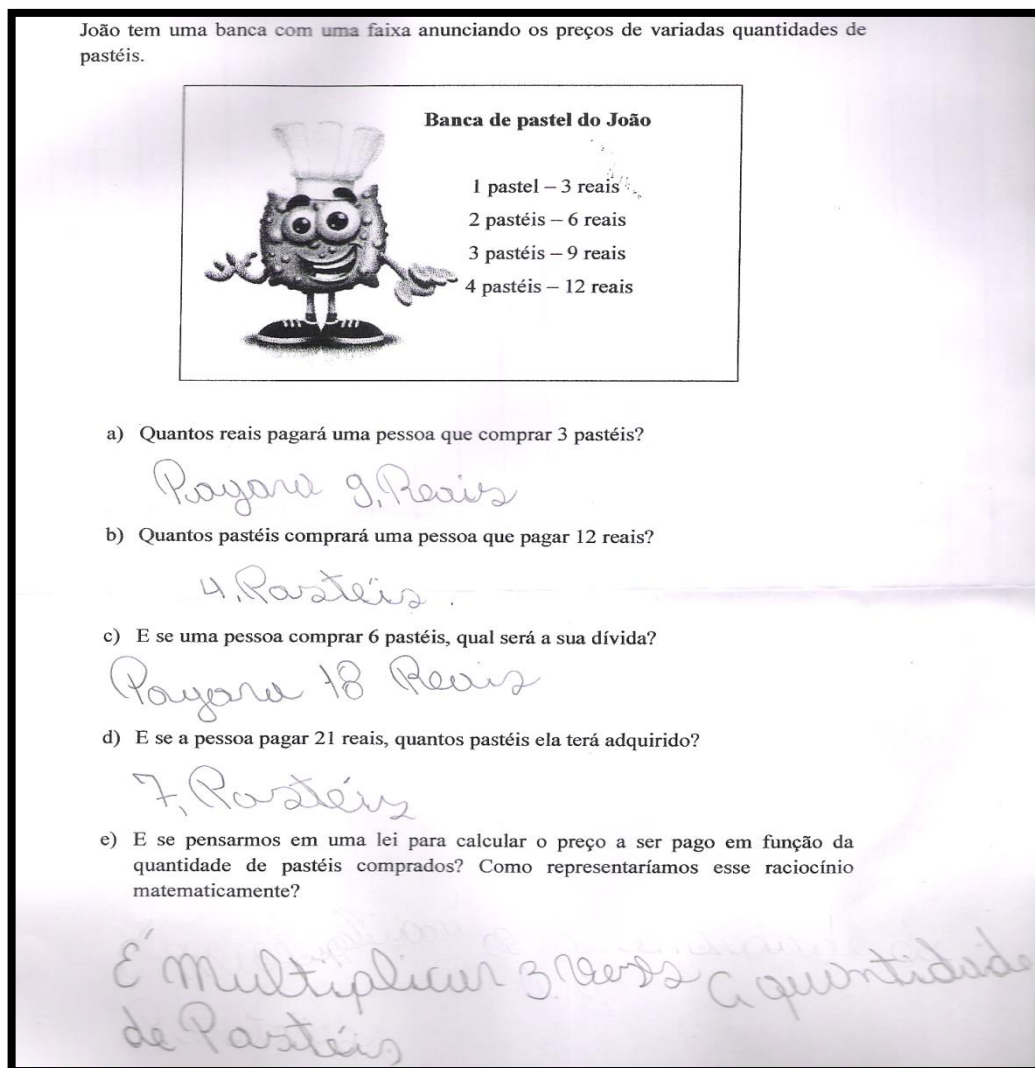 João tem uma banca com uma faixa anunciando os preços de variadas quantidades de
pastéis.
Banca de pastel do João
1 pastel – 3 reais
2 pastéis – 6 reais
3 pastéis – 9 reais
4 pastéis – 12 reais
a) Quantos reais pagará uma pessoa que comprar 3 pastéis?
Pagara 9, Reais
b) Quantos pastéis comprará uma pessoa que pagar 12 reais?
4, Pastéis.
c) E se uma pessoa comprar 6 pastéis, qual será a sua dívida?
Pagara 18 Reais
d) E se a pessoa pagar 21 reais, quantos pastéis ela terá adquirido?
7, Pastéis
e) E se pensarmos em uma lei para calcular o preço a ser pago em função da
quantidade de pastéis comprados? Como representaríamos esse raciocínio
matematicamente?
É multiplicar 3 vezes a quantidade
de Pastéis